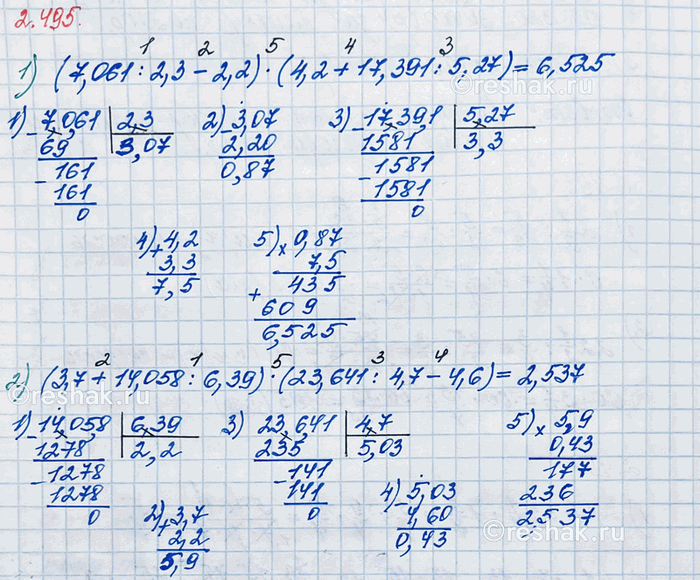 2.495.
1 2 5 4 3
1) (7,061 : 2,3 - 2,2) · (4,2 + 17,391 : 5,27) = 6,525
1) 7,061 | 2,3 2) 3,07 3) 17,391 | 5,27
69 3,07 - 2,20 - 1581 3,3
- 161 0,87 - 1581
161 1581
0 0
4) + 4,2 5) × 0,87
3,3 7,5
7,5 435
+ 609
6,525
2 1 5 3 4
2) (3,7 + 14,058 : 6,39) · (23,641 : 4,7 - 4,6) = 2,537
1) - 14,058 | 6,39 3) 23,641 | 4,7 5) × 5,9
1278 2,2 235 5,03 0,43
- 1278 - 141 177
1278 141 4) - 5,03 236
0 2) + 3,7 0 4,60 2,537
2,2 0,43
5,9
reshak.ru